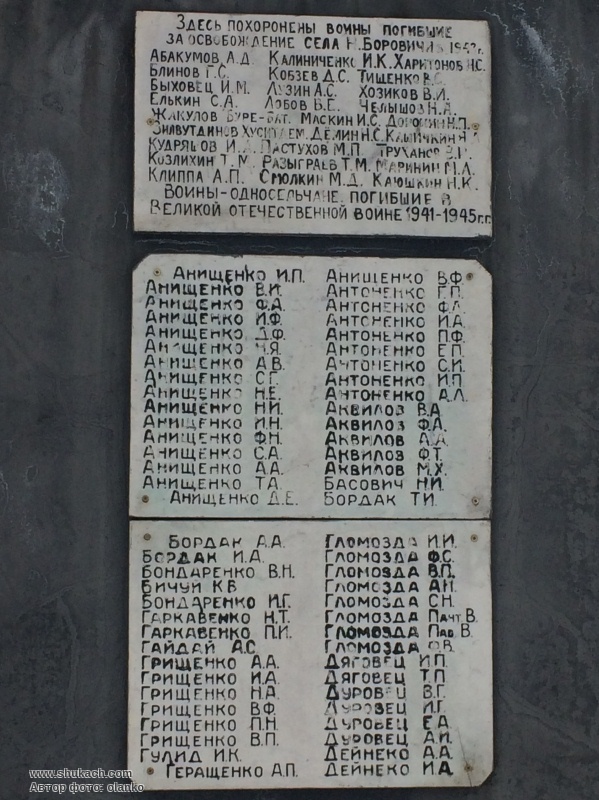 Здесь похоронены воины погибшие
за освобождение села Н.Боровичи в 1943г.
Абакумов А.Д. Калиниченко И.К. Харитонов Н.С.
Блинов Г.С. Кобзев Д.С. Тищенко В.С.
Быховец И.М. Лузин А.С. Хозиков В.И.
Елькин С.А. Лобов В.Е. Челышов Н.А.
Жакулов Буре-Бат. Маскин И.С. Доронин Н.П.
Зилвутдинов Делин Н.С.
Кудряшов И.А. Пастухов М.П. Труханов
Козлихин Т.М. Разыграев Т.М. Маринин М.А.
Клиппа А.П. Смолкин М.Д. Каюшкин Н.К.
Воины-односельчане, погибшие в
Великой Отечественной войне 1941-1945г.г.
Анищенко И.П.
Анищенко В.И.
Анищенко Ф.А.
Анищенко И.Ф.
Анищенко Д.Ф.
Анищенко Н.Я.
Анищенко А.В.
Анищенко С.Г.
Анищенко Н.Е.
Анищенко Н.И.
Анищенко И.Н.
Анищенко Ф.Н.
Анищенко С.А.
Анищенко А.А.
Анищенко Т.А.
Анищенко Д.Е.
Анищенко В.Ф.
Антоненко Г.П.
Антоненко Ф.А.
Антоненко И.А.
Антоненко П.Ф.
Антоненко Е.П.
Антоненко С.И.
Антоненко И.П.
Антоненко А.Л.
Аквилов В.А.
Аквилов Ф.А.
Аквилов А.А.
Аквилов Ф.Т.
Аквилов М.Х.
Басович Н.И.
Бордак Т.И.
Бордак А.А.
Бордак И.А.
Бондаренко В.Н.
Бичуй К.В.
Бондаренко И.Г.
Гаркавенко Н.Т.
Гаркавенко П.И.
Гайдай А.С.
Грищенко А.А.
Грищенко И.А.
Грищенко Н.А.
Грищенко В.Ф.
Грищенко П.Н.
Грищенко В.П.
Гулид И.К.
Геращенко А.П.
Гломозда И.И.
Гломозда Ф.С.
Гломозда В.П.
Гломозда А.И.
Гломозда С.Н.
Гломозда Пачт.В.
Гломозда Пав.В.
Гломозда О.В.
Дяговец И.П.
Дяговец Т.П.
Дуровец В.Г.
Дуровец И.Г.
Дуровец Е.А.
Дуровец А.И.
Дейнеко А.А.
Дейнеко И.А.
www.shukach.com
Автор фото: olanko